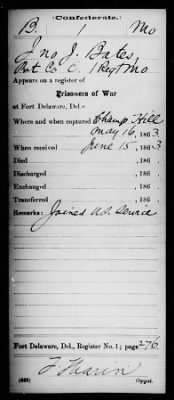 (Confederate.)
B. 1 Mo
Jno J. Bates
Pvt Co C, 1 Regt Mo
Appears on a register of
Prisoners of War
at Fort Delaware, Del.
Where and when captured Champ. Hill
May 16, 1863
When received June 15, 1863
Died , 186
Discharged , 186
Exchanged , 186
Transferred , 186
Remarks: Joined U.S. Service
Fort Delaware, Del., Register No. 1; page 276
Copyist.